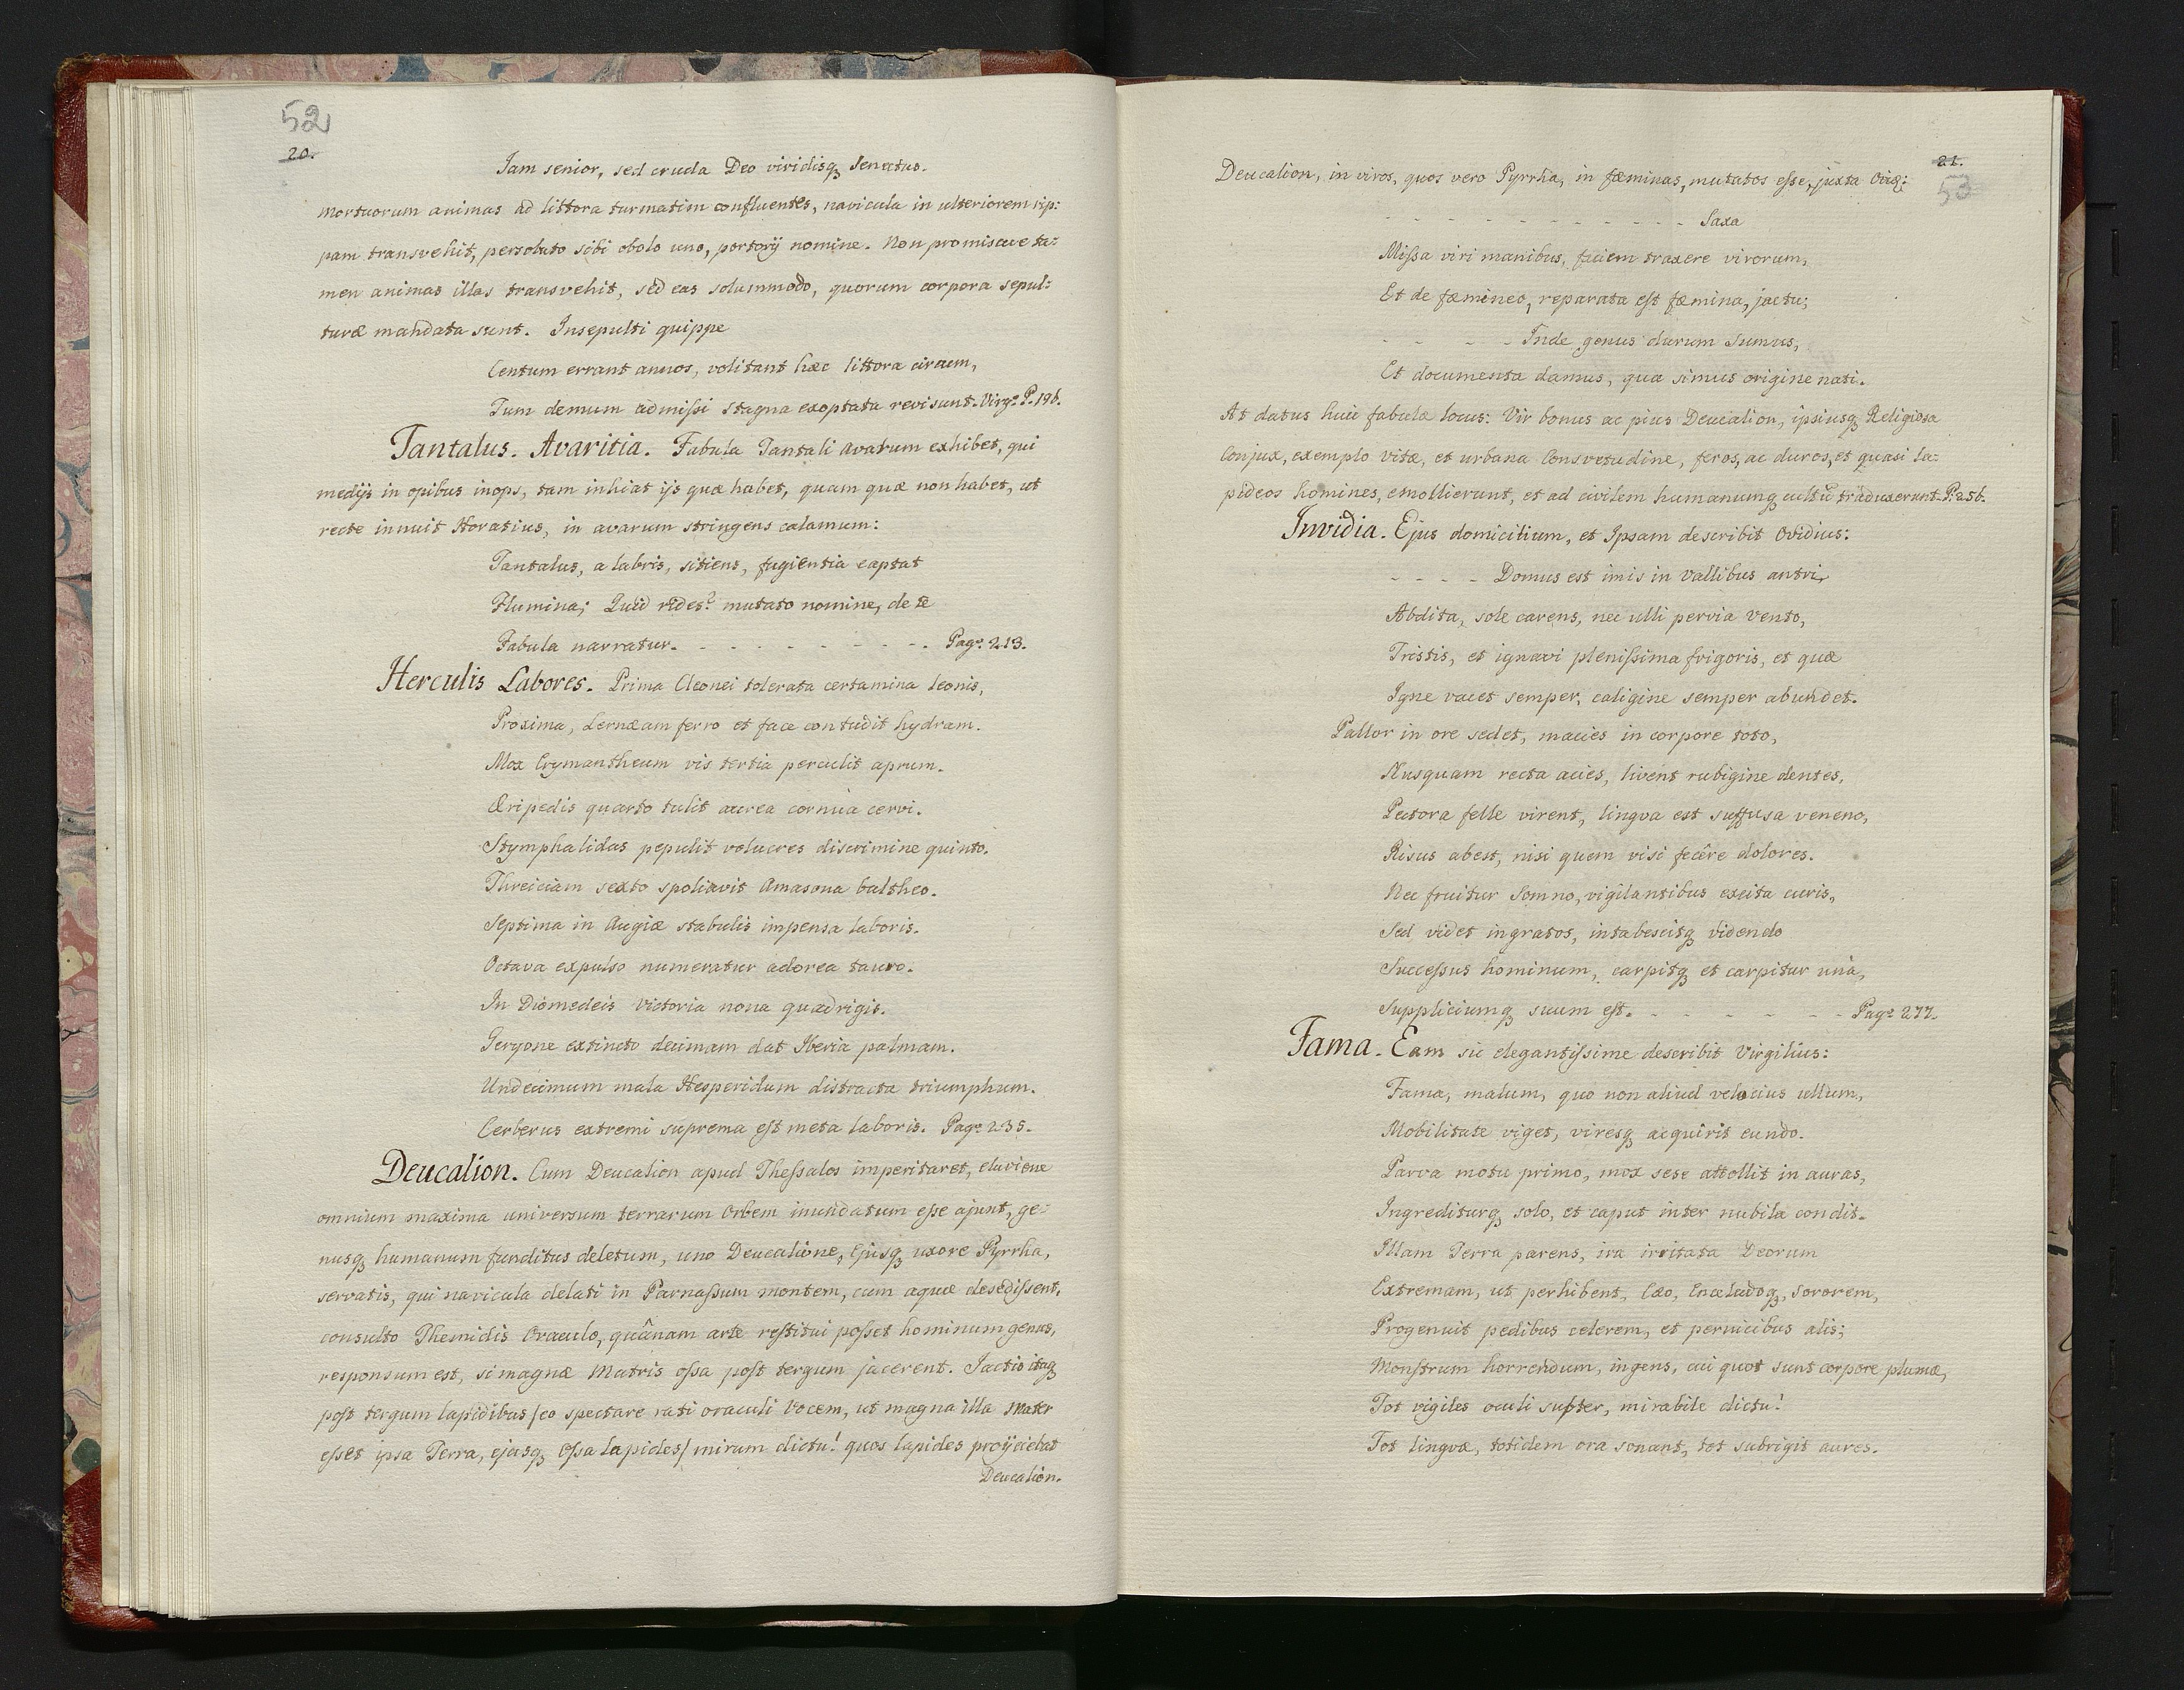 52
20.
Jam senior, sed cruda Deo viridisq; Senectus.
mortuorum animas ad littora turmatim confluentes, navicula in ulteriorem rip:
pam transvehit, persoluto sibi obolo uno, portorij nomine. Non promiscue ta:
men animas illas transvehit, sed eas solummodo, quorum corpora sepul:
turæ mandata sunt. Insepulti quippe
Centum errant annos, volitant hæc littora circum,
Tum demum admissi stagna exoptata revisunt. Virg: P. 196.
Tantalus. Avaritia. Fabula Tantali avarum exhibet, qui
medijs in opibus inops, tam inhiat ijs quæ habet, quam quæ non habet, ut
recte innuit Horatius, in avarum stringens calamum:
Tantalus, a labris, sitiens, fugientia captat
Flumina; Quid rides? mutato nomine, de te
Fabula narratur. - - - - - - - - Pag: 213.
Herculis Labores. Prima Cleonei tolerata certamina leonis,
Proxima, Lernæam ferro et face contudit hydram.
Mox Erymantheum vis tertia perculit aprum.
Æripedis quarto tulit aurea cornua cervi.
Stymphalidas pepulit volucres discrimine quinto.
Threiciam sexto spoliavit Amasona baltheo.
Septima in Augiæ stabulis impensa laboris.
Octava expulso numeratur adorea tauro.
In Diomedeis victoria nona quadrigis.
Geryone extincto decimam dat Iberia palmam.
Undecimum mala Hesperidum distracta triumphum.
Cerberus extremi suprema est meta laboris. Pag: 235.
Deucalion. Cum Deucalion apud Thessalos imperitaret, eluvione
omnium maxima universum terrarum Orbem inundatum esse ajunt, ge:
nusq; humanum funditus deletum, uno Deucalione, Ejusq; uxore Pyrrha,
servatis, qui navicula delati in Parnassum montem, cum aquæ desedissent,
consulto Themidis Oraculo, quânam arte restitui posset hominum genus,
responsum est, si magnæ Matris ossa post tergum jacerent. Jactis itaq;
post tergum lapidibus /eo spectare rati oraculi vocem, ut magna illa Mater
esset ipsa Terra, ejusq; Ossa lapides/ mirum dictu! quos lapides proijciebat
Deucalion.
21.
53
Deucalion, in viros, quos vero Pyrrha, in fæminas, mutatos esse, juxta Ovid:
- - - - - - - - - - - - Saxa
Missa viri manibus, faciem traxere virorum,
Et de fæmineo, reparata est fæmina, jactu;
- - - - Inde genus durum sumus,
Et documenta damus, qua simus origine nati.
At datus huic fabulæ locus: Vir bonus ac pius Deucalion, ipsiusq; Religiosa
Conjux, exemplo vitæ, et urbana Consvetudine, feros, ac duros, et quasi la:
pideos homines, emollierunt, et ad civilem humanumq; cultũ traduxerunt. P: 256.
Invidia. Ejus domicilium, et Ipsam describit Ovidius:
- - - - Domus est imis in vallibus antri,
Abdita, sole carens, nec ulli pervia vento,
Tristis, et ignavi plenissima frigoris, et quæ
Igne vacet semper, caligine semper abundet.
Pallor in ore sedet, macies in corpore toto,
Nusquam recta acies, livent rubigine dentes,
Pectora felle virent, lingva est suffusa veneno,
Risus abest, nisi quem visi fecêre dolores.
Nec fruitur Somno, vigilantibus excita curis,
Sed videt ingratos, intabescitq; videndo
Successus hominum, carpitq; et carpitur unà,
Suppliciumq; suum est. - - - - - - Pag: 277.
Fama. Eam sic elegantissime describit Virgilius:
Fama, malum, quo non aliud velocius ullum,
Mobilitate viget, viresq; acquirit eundo.
Parva motu primo, mox sese attollit in auras,
Ingrediturq; solo, et caput inter nubila condit.
Illam Terra parens, ira irritata Deorum
Extremam, ut perhibent, Cæo, Enceladoq;, sororem,
Progenuit pedibus celerem, et pernicibus alis;
Monstrum horrendum, ingens, cui quot sunt corpore plumæ,
Tot vigiles oculi supter, mirabile dictu!
Tot lingvæ, totidem ora sonant, tot subrigit aures.